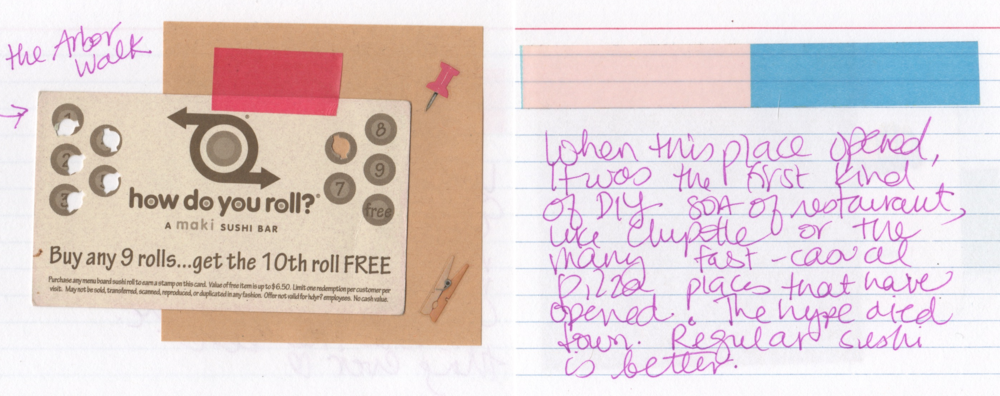 the Arbor
Walk
8
9
7
free
how do you roll?®
A maki SUSHI BAR
Buy any 9 rolls...get the 10th roll FREE
Purchase any menu board sushi roll to earn a stamp on this card. Value of free item is up to $6.50. Limit one redemption per customer per
visit. May not be sold, transferred, scanned, reproduced, or duplicated in any fashion. Offer not valid for hdyr? employees. No cash value.
When this place opened,
it was the first kind
of DIY sorta of restaurant,
like Chipotle or the
many fast-casual
pizza places that have
opened. The hype died
down. Regular sushi
is better.